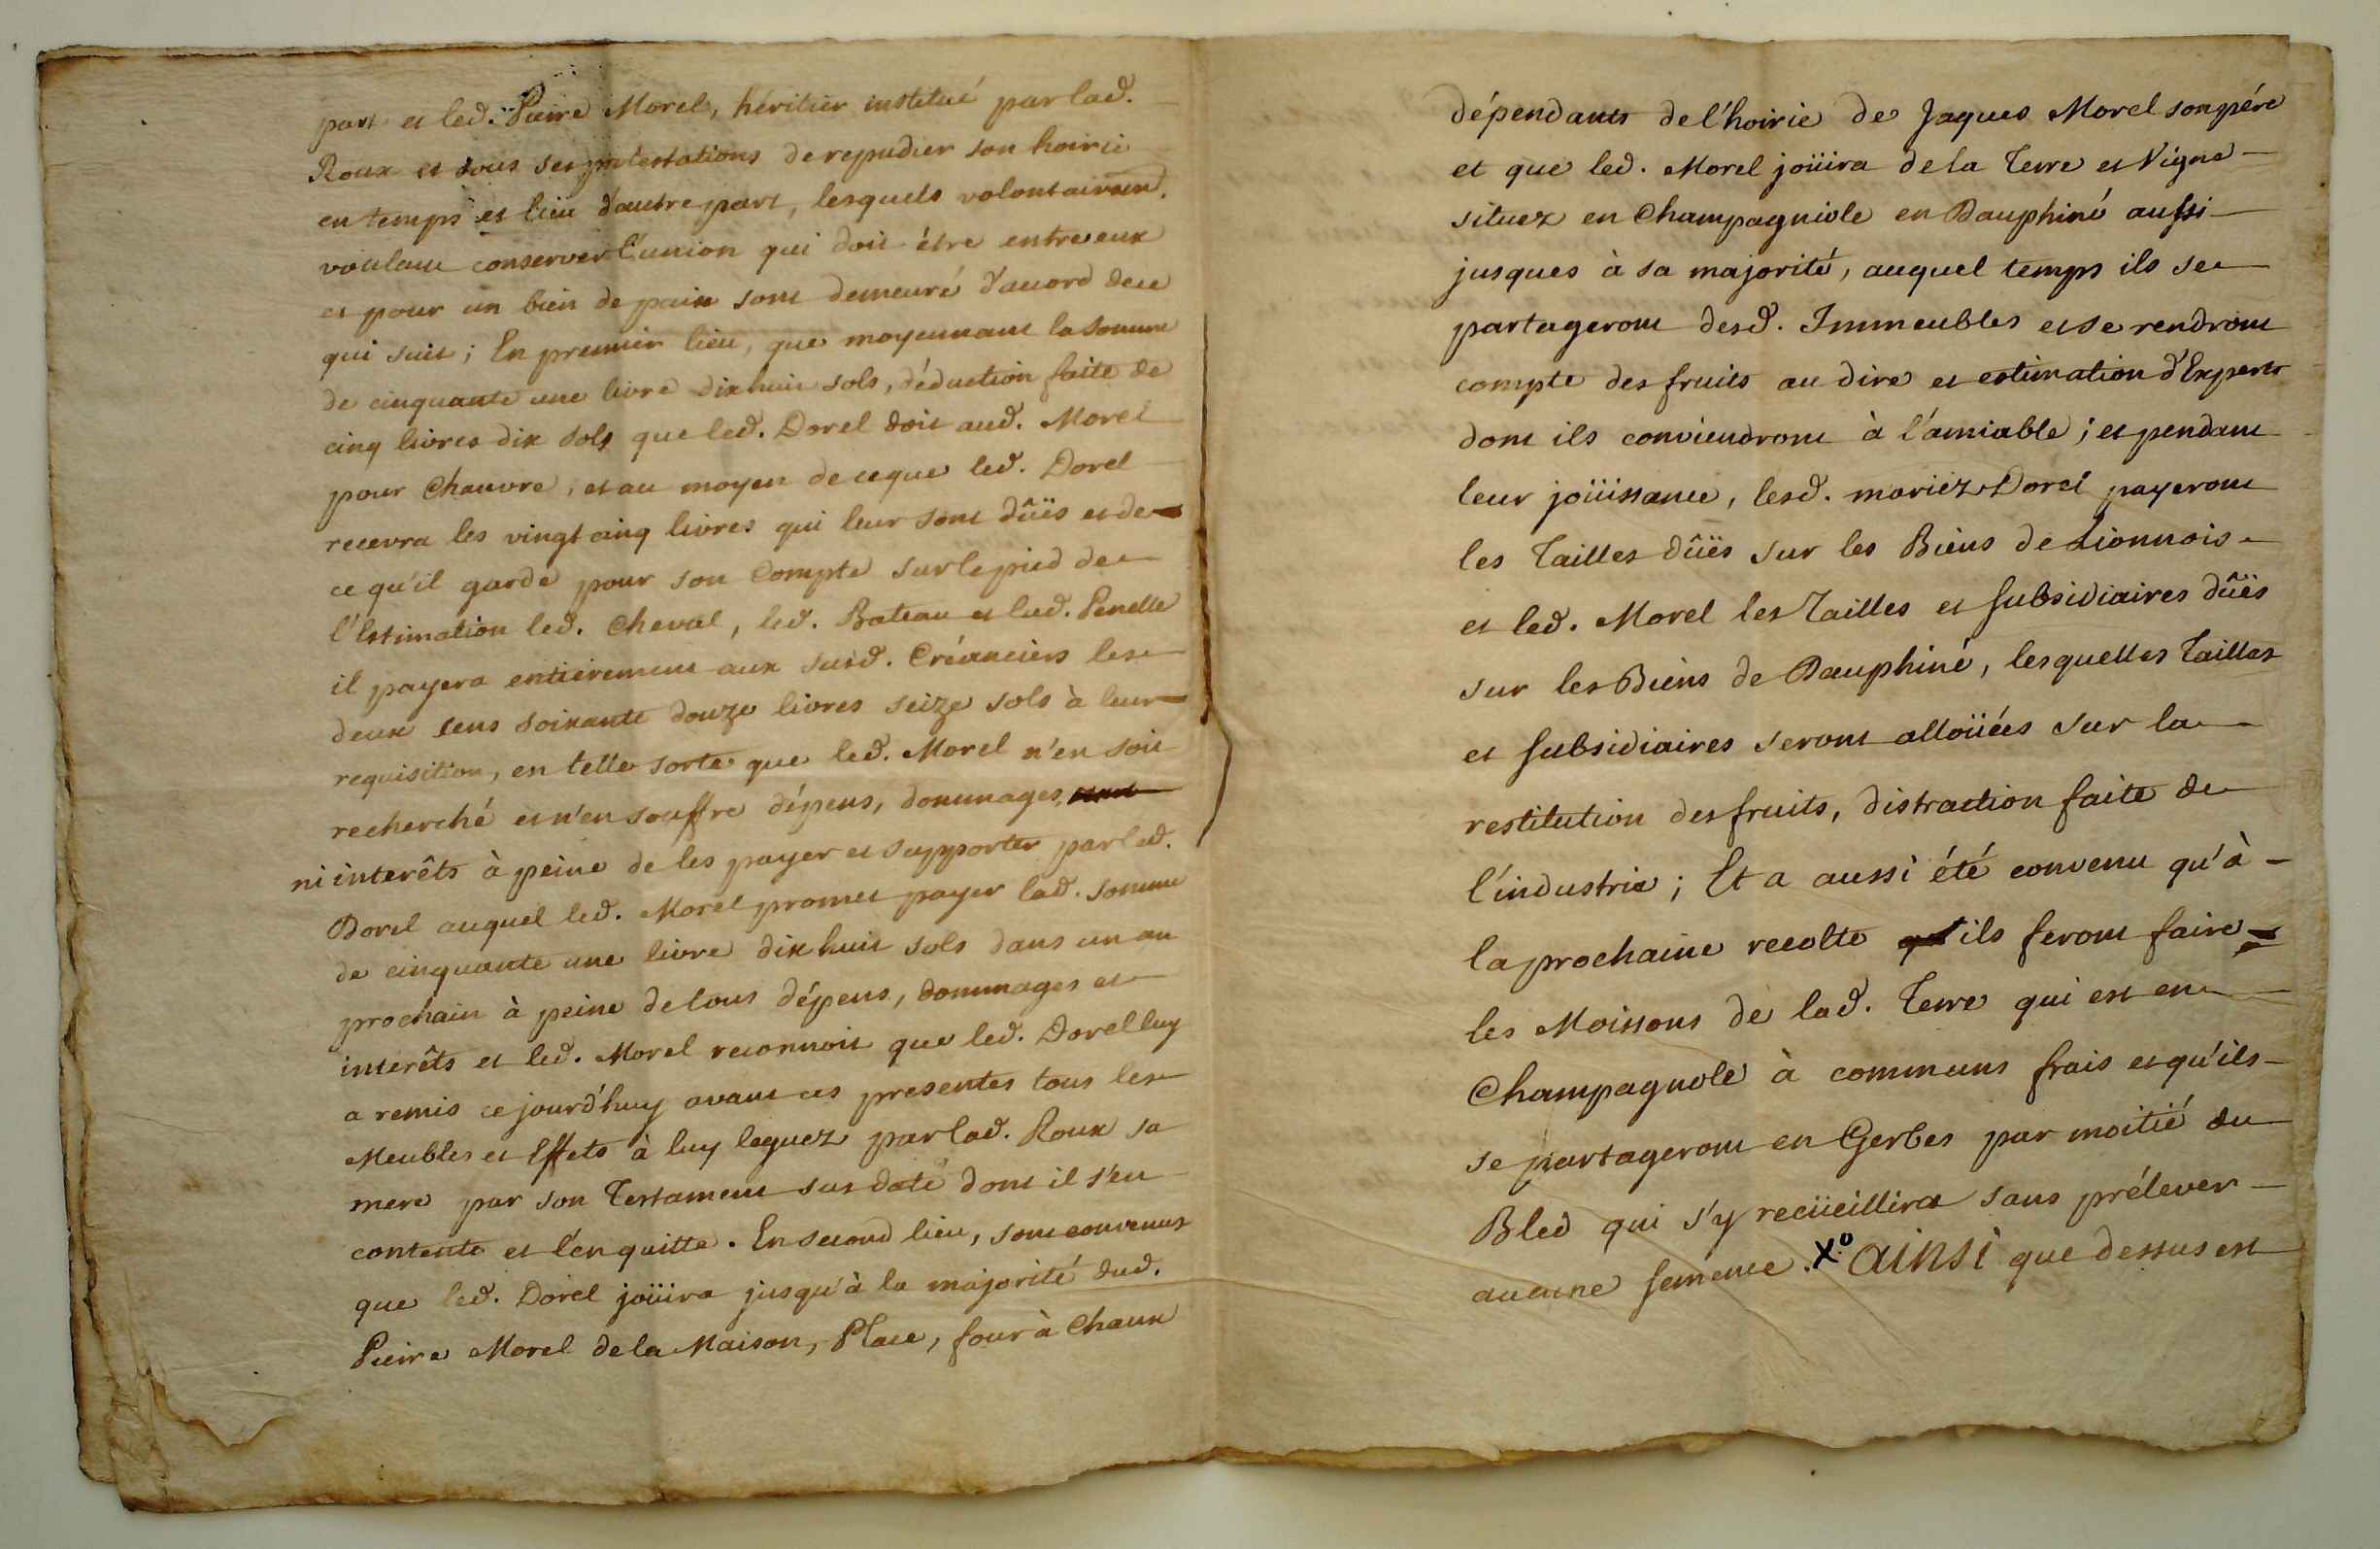 part et led. Pierre Morel, héritier institué par lad.
Roux et sous ses protestations de repudier son hoirie
en temps et lieu d'autre part, lesquels volontairemt.
voulant conserver l'union qui doit être entre eux
et pour un bien de paix sont demeuré d'accord de ce
qui suit ; En premier lieu, que moyennant la somme
de cinquante une livre dix huit sols, déduction faite de
cinq livres dix sols que led. Dorel doit aud. Morel
pour Chanvre, et au moyen de ce que led. Dorel
recevra les vingt cinq livres qui leur sont dûës et de
ce qu'il garde pour son Compte sur le pied de
l'Estimation led. Cheval, led. Bateau et lad. Penelle
il payera entièrement aux susd. Créanciers les
deux cens soixante douze livres seize sols à leur
requisition, en telle sorte que led. Morel n'en soit
recherché et n'en souffre dépens, dommages
ni interêts à peine de les payer et supporter par led.
Dorel auquel led. Morel promet payer lad. somme
de cinquante une livre dix huit sols dans un an
prochain à peine de tous dépens, dommages et
interêts et led. Morel reconnoit que led. Dorel luy
a remis ce jourd'huy avant ces presentes tous les
Meubles et Effets à luy leguez par lad. Roux sa
mere par son Testament sus daté dont il s'en
contente et l'en quitte. En second lieu, sont convenus
que led. Dorel joüira jusqu'à la majorité dud.
Pierre Morel de la Maison, Place, four à Chaux
dépendants de l'hoirie de Jaques Morel son pére
et que led. Morel joüira de la Terre et Vigne
situez en Champagniole en Dauphiné aussi
jusques à sa majorité, auquel temps ils se
partageront desd. Immeubles et se rendront
compte des fruits au dire et estimation d'Experts
dont ils conviendront à l'amiable ; et pendant
leur joüissance, lesd. mariez Dorel payeront
les Tailles dûës sur les Biens de Lionnois
et led. Morel les Tailles et subsidiaires dûës
sur les Biens de Dauphiné, lesquelles Tailles
et subsidiaires seront alloüées sur la
restitution des fruits, distraction faite de
l'industrie ; Et a aussi été convenu qu'à
la prochaine recolte ils feront faire
les Moissons de lad. Terre qui est en
Champagnole à communs frais et qu'ils
se partageront en Gerbes par moitié du
Bled qui s'y recüeillira sans prélever
aucune semence. X.o AINSI que dessus est